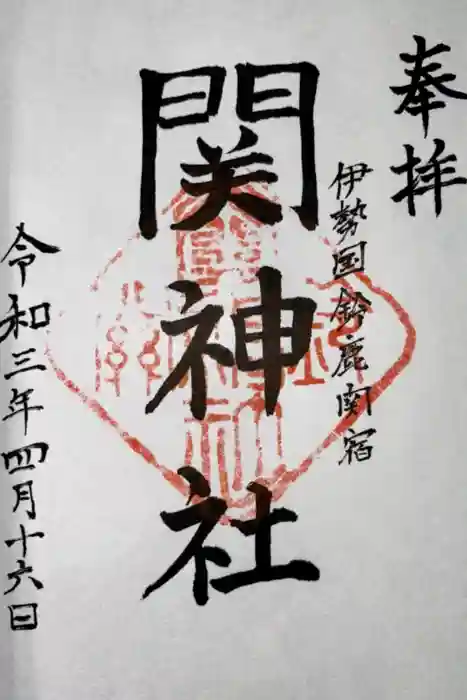 奉拝
伊勢国鈴鹿関宿
関神社
令和三年四月十六日